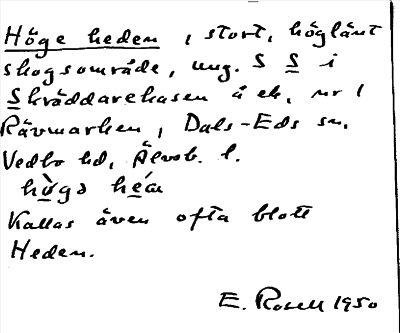 Höge heden, stort, höglänt
skogsområde, ung. S S i
Skräddarekasen å ek. nr 1
Rävmarken, Dals-Eds sn,
Vedbo hd, Älvsb. l.
Kallas även ofta blott
Heden.
E. Rosell 1950